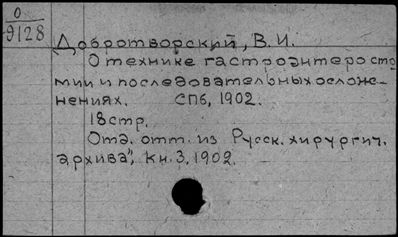 О
9128
Добротворский, В. И.
О технике гастроэнтеросто
мии и последовательных осложе-
нениях. СПб, 1902.
18 стр.
Отд. отт. из Русск. хирургич.
архива", кн. 3, 1902.